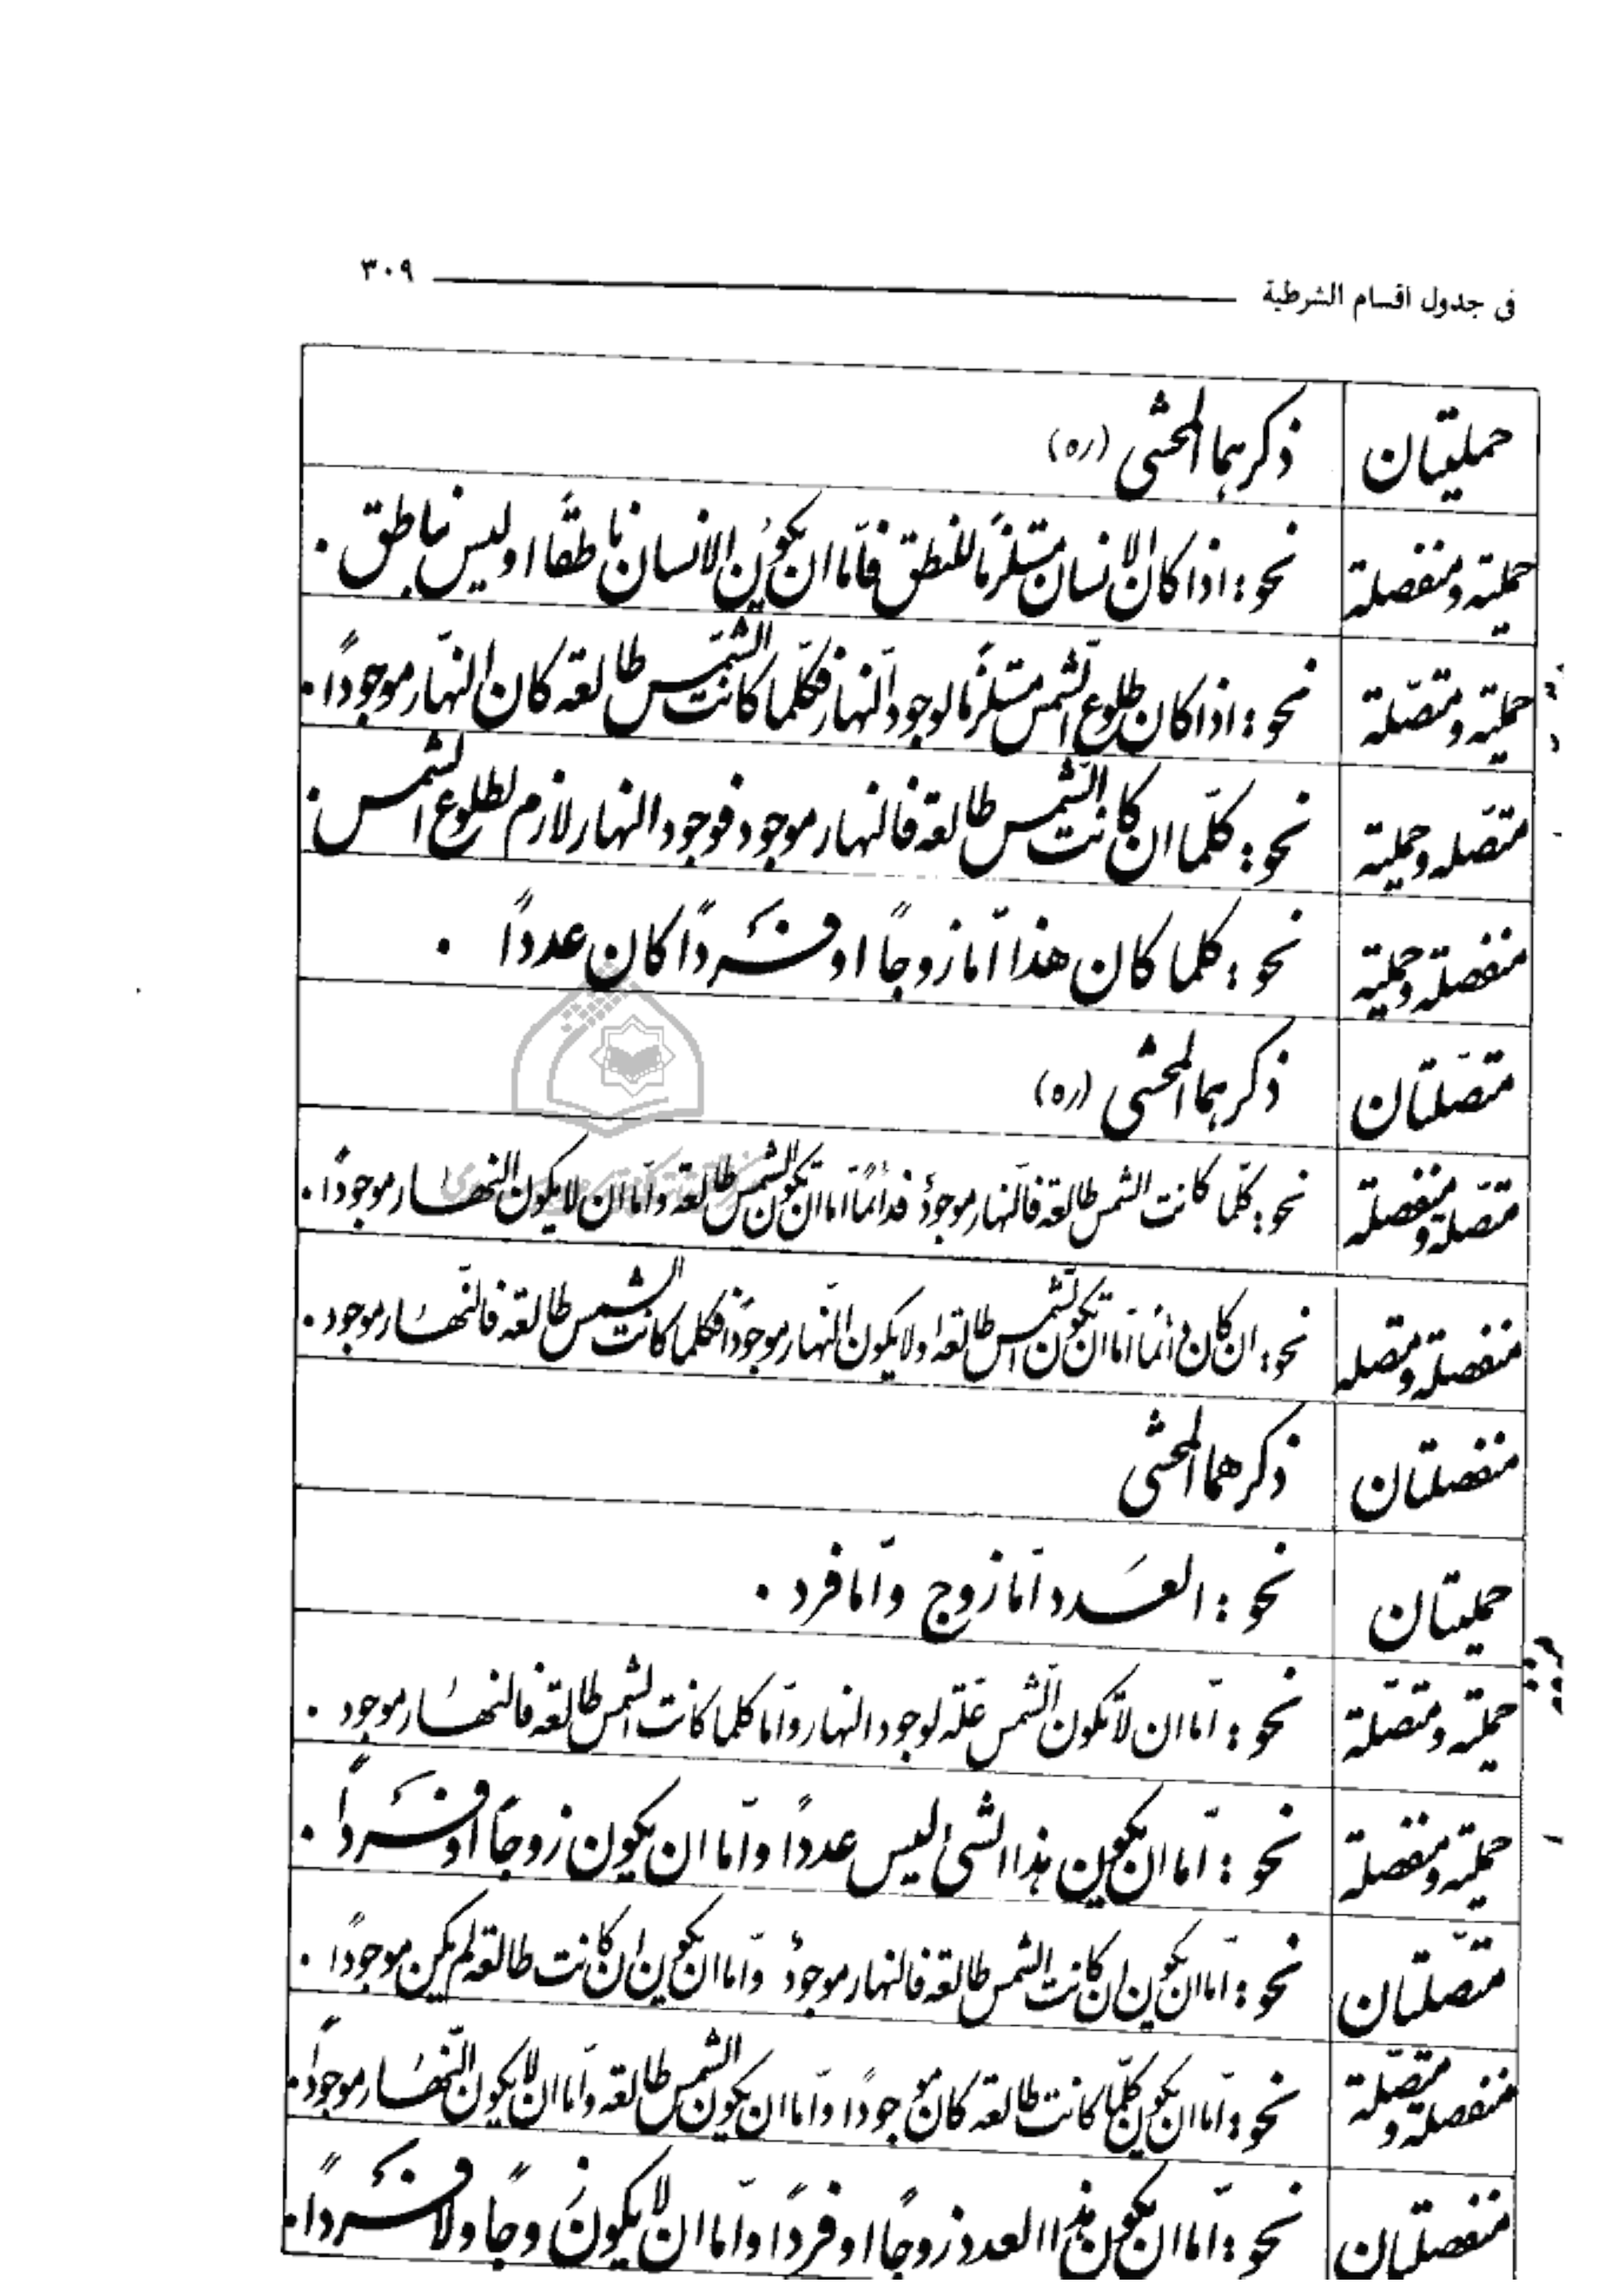 في جدول اقسام الشرطية ٣٠٩
حمليتان ذكرهما المحشى (ره)
حملية ومنفصلة نحو: اذا كان الانسان مستلزمًا للنطق فامّا ان يكون الانسان ناطقًا او ليس بناطق.
حملية ومتصّلة نحو: اذا كان طلوع الشّمس مستلزمًا لوجود النّهار فكلّما كانت الشّمس طالعة كان النهّار موجودًا.
متصّله وحملية نحو: كلّما ان كانت الشّمس طالعة فالنهار موجود فوجود النهار لازم لطلوع الشمس.
منفصلة وحملية نحو: كلما كان هذا امّا زوجًا او فردًا كان عددًا.
متصّلتان ذكرهما المحشى (ره)
متصّلة ومنفصلة نحو: كلّما كانت الشمس طالعة فالنّهار موجودٌ فدائمًا امّا ان تكون الشمس طالعة وامّا ان لا يكون النهار موجودًا.
منفصلة ومتصله نحو: ان كان دائمًا امّا ان تكون الشّمس طالعة او لا يكون النّهار موجودًا فكلما كانت الشمس طالعة فالنّهار موجود.
منفصلتان ذكرهما المحشى
حمليتان نحو: العدد امّا زوج وامّا فرد.
حملية ومتصّلة نحو: امّا ان لا تكون الشّمس علّة لوجود النهار وامّا كلما كانت الشمس طالعة فالنهار موجود.
حملية ومنفصلة نحو: امّا ان يكون هذا الشئ ليس عددًا وامّا ان يكون زوجًا او فردًا.
متصّلتان نحو: امّا ان يكون ان كانت الشمس طالعة فالنهار موجودٌ وامّا ان يكون ان كانت طالعة لم يكن موجودًا.
منفصلة ومتصّلة نحو: امّا ان يكون كلّما كانت طالعة كان موجودًا وامّا ان يكون الشمس طالعة وامّا ان لا يكون النّهار موجودًا.
منفصلتان نحو: امّا ان يكون هذا العدد زوجًا او فردًا وامّا ان لا يكون زوجًا ولا فردًا.